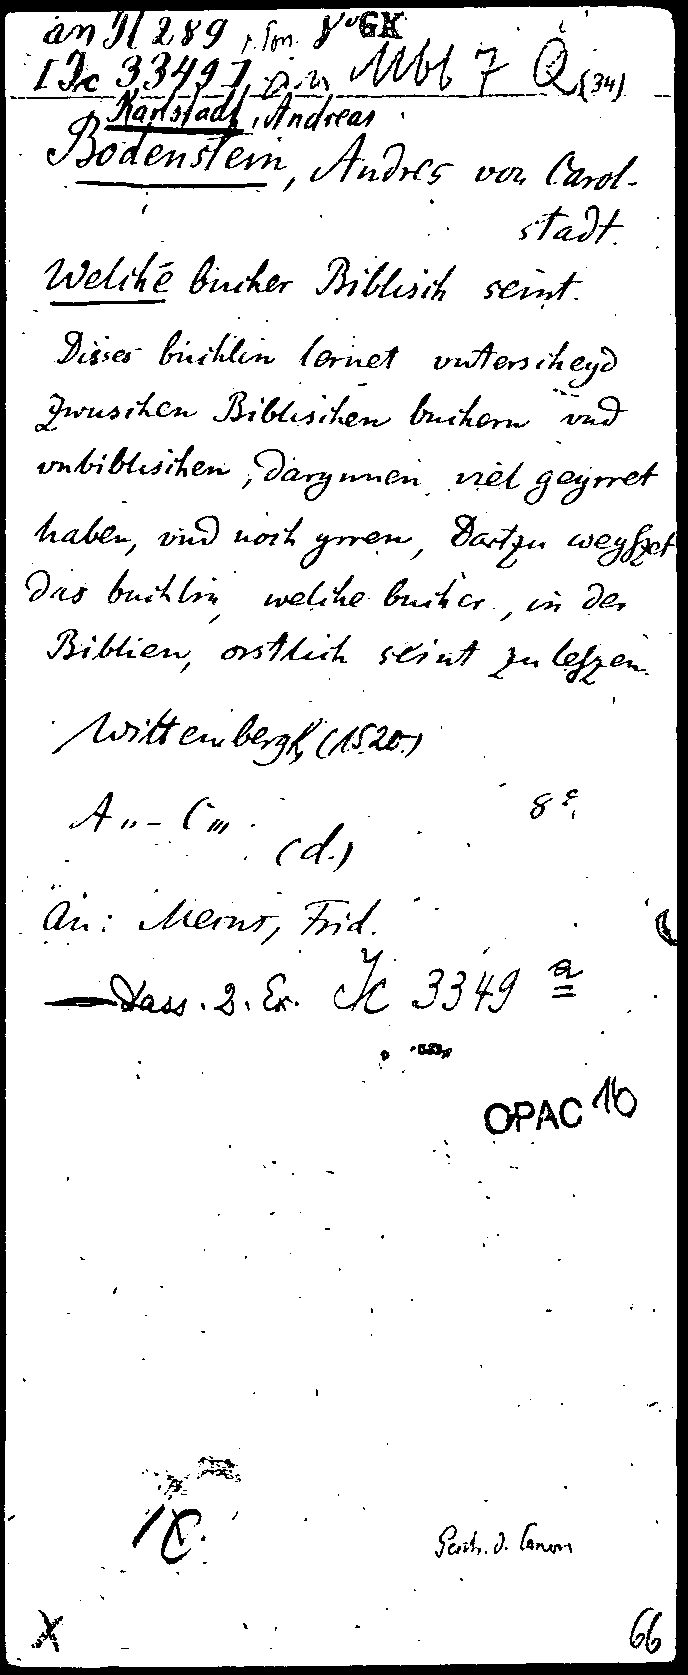 an Il 289, 8° GK
I Jc 3349 7, an Mbb 7 Q (34)
Karlstadt, Andreas
Bodenstein, Andres von Carol-
stadt.
Welche bucher Biblisch seint.
Disses buchlin lernet vnterscheyd
zwuschen Biblischen buchern vnd
vnbiblischen, darynnen viel geyrret
haben, vnd noch yrren, Dartzu weyszet
das buchlin, welche bucher, in der
Biblien, orstlich seint zuleszen.
Wittembergk, (1520.)
A ii - C iii 8°.
(d.)
An: Merns, Frid.
Dass. 2. Ex. Jc 3349 a
OPAC 16
Gesch. d. Canon
X 66